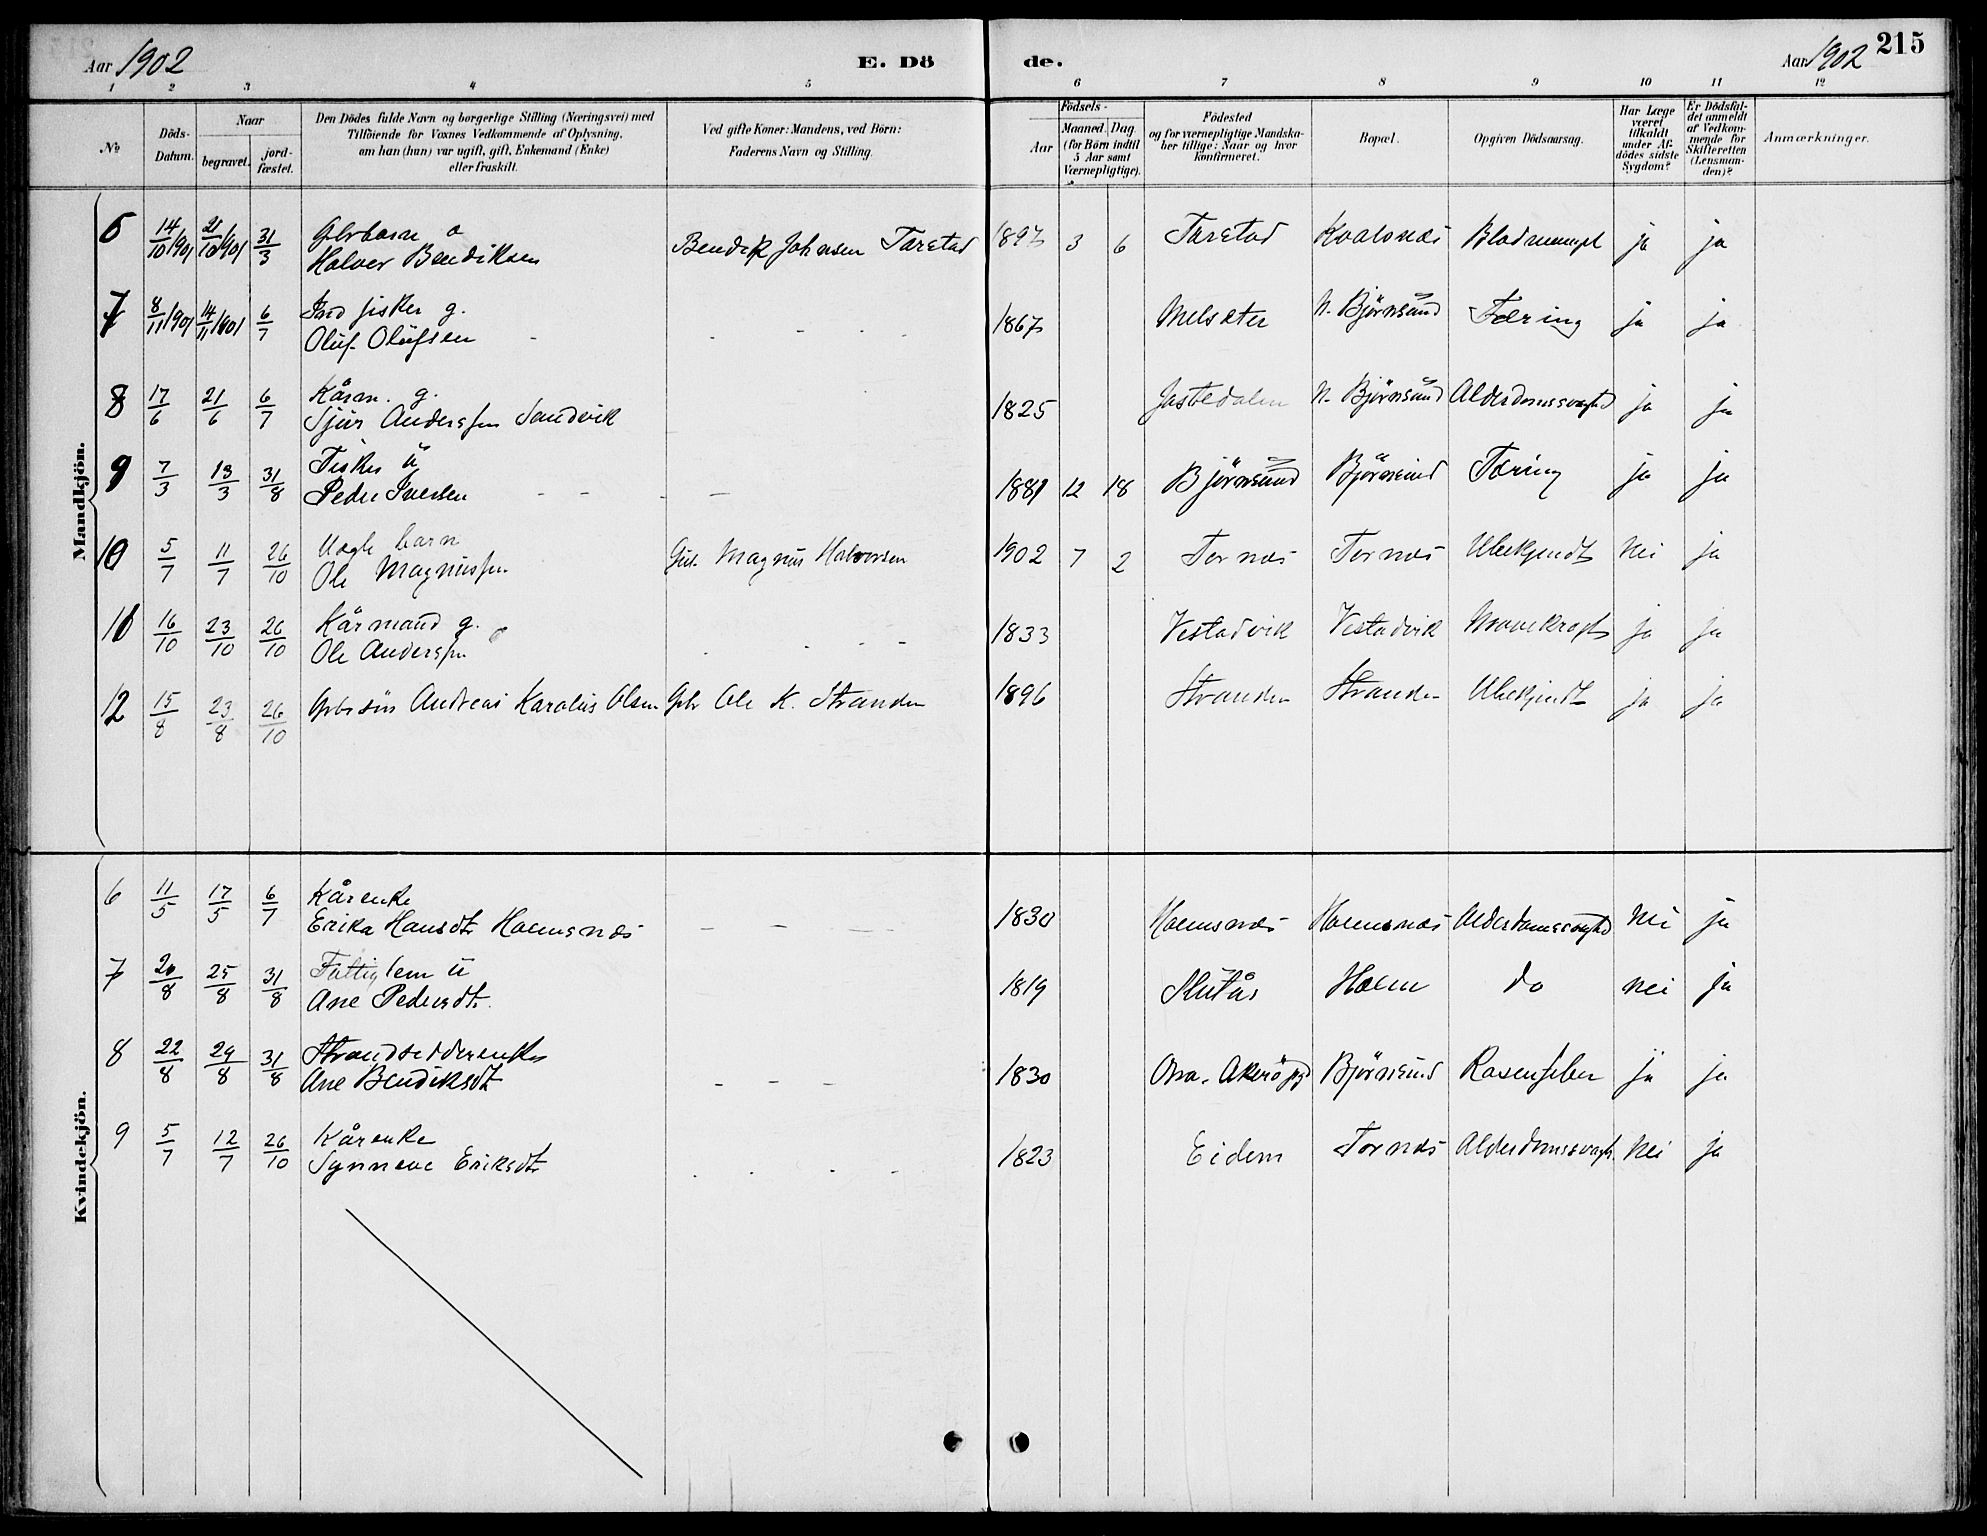 Aar 1902 E. Dö de. Aar 1902 215
1 2 3 4 5 6 7 8 9 10 11 12
№ Döds-Datum. Naar begravet. jordfæstet. Den Dödes fulde Navn og borgerlige Stilling (Næringsvei) med Tilföiende for Voxnes Vedkommende af Oplysning, om han (hun) var ugift, gift, Enkemand (Enke) eller fraskilt. Ved gifte Koner: Mandens, ved Börn: Faderens Navn og Stilling. Födsels- Aar Maaned. Dag (for Börn indtil 5 Aar samt Værnepligtige). Födested og for værnepligtige Mandskaber tillige: Naar og hvor konfirmeret. Bopæl. Opgiven Dödsaarsag. Har Læge været tilkaldt under Afdödes sidste Sygdom? Er Dödsfaldet anmeldt af Vedkommende for Skifteretten (Lensmanden)? Anmærkninger.
Mandkjön.
6 14/10 1901 21/10 1901 31/3 Gbrbarn
Halvor Bendiksen Bendik Johnsen Tarstad 1897 3 6 Tarstad Kvalsnæs ja ja
7 8/11 1901 14/11 1801 6/7 Ind fisker g.
Oluf Olufsen - - 1867 Melsæter N. Björnsund Tæring ja ja
8 17/6 21/6 6/7 Kårm. g.
Sjur Anderssen Sandvik 1825 Jostedalen N. Björnsund Alderdomssvaghd ja ja
9 7/3 13/3 31/8 Fisker ü
Peder Iversen - - - - 1881 12 18 Björnsund Björnsund Tæring ja ja
10 5/7 11/7 26/10 Uægte barn
Ole Magnussen Gut. Magnus Halvorsen 1902 7 2 Tornæs Tornæs Ubekjendt Nei ja
11 16/10 23/10 26/10 Kårmand g.
Ole Anderssen - - 1833 Vestadvik Vestadvik Mavekræft ja ja
12 15/8 23/8 26/10 Gbrsön Andreas Karolus Olsen Gbr Ole K. Stranden 1896 Stranden Stranden Ubekjendt ja ja
Kvindekjön.
6 11/5 17/5 6/7 Kårenke
Erika Hansdtr Holmsnæs - - - - 1830 Holmsnæs Holmsnæs Alderdomssvaghd Nei ja
7 20/8 25/8 31/8 Fattiglem ü
Ane Pedersdtr. 1819 Slutås Holm do nei ja
8 22/8 29/8 31/8 Strandsidderenke
Ane Bendiksdtr - - - 1830 Ona. Akerö pgd Björnsund Rosenfeber ja ja
9 5/7 12/7 26/10 Kårenke
Synneve Eriksdtr - - - - 1823 Eidem Tornæs Alderdomssvagh. Nei ja